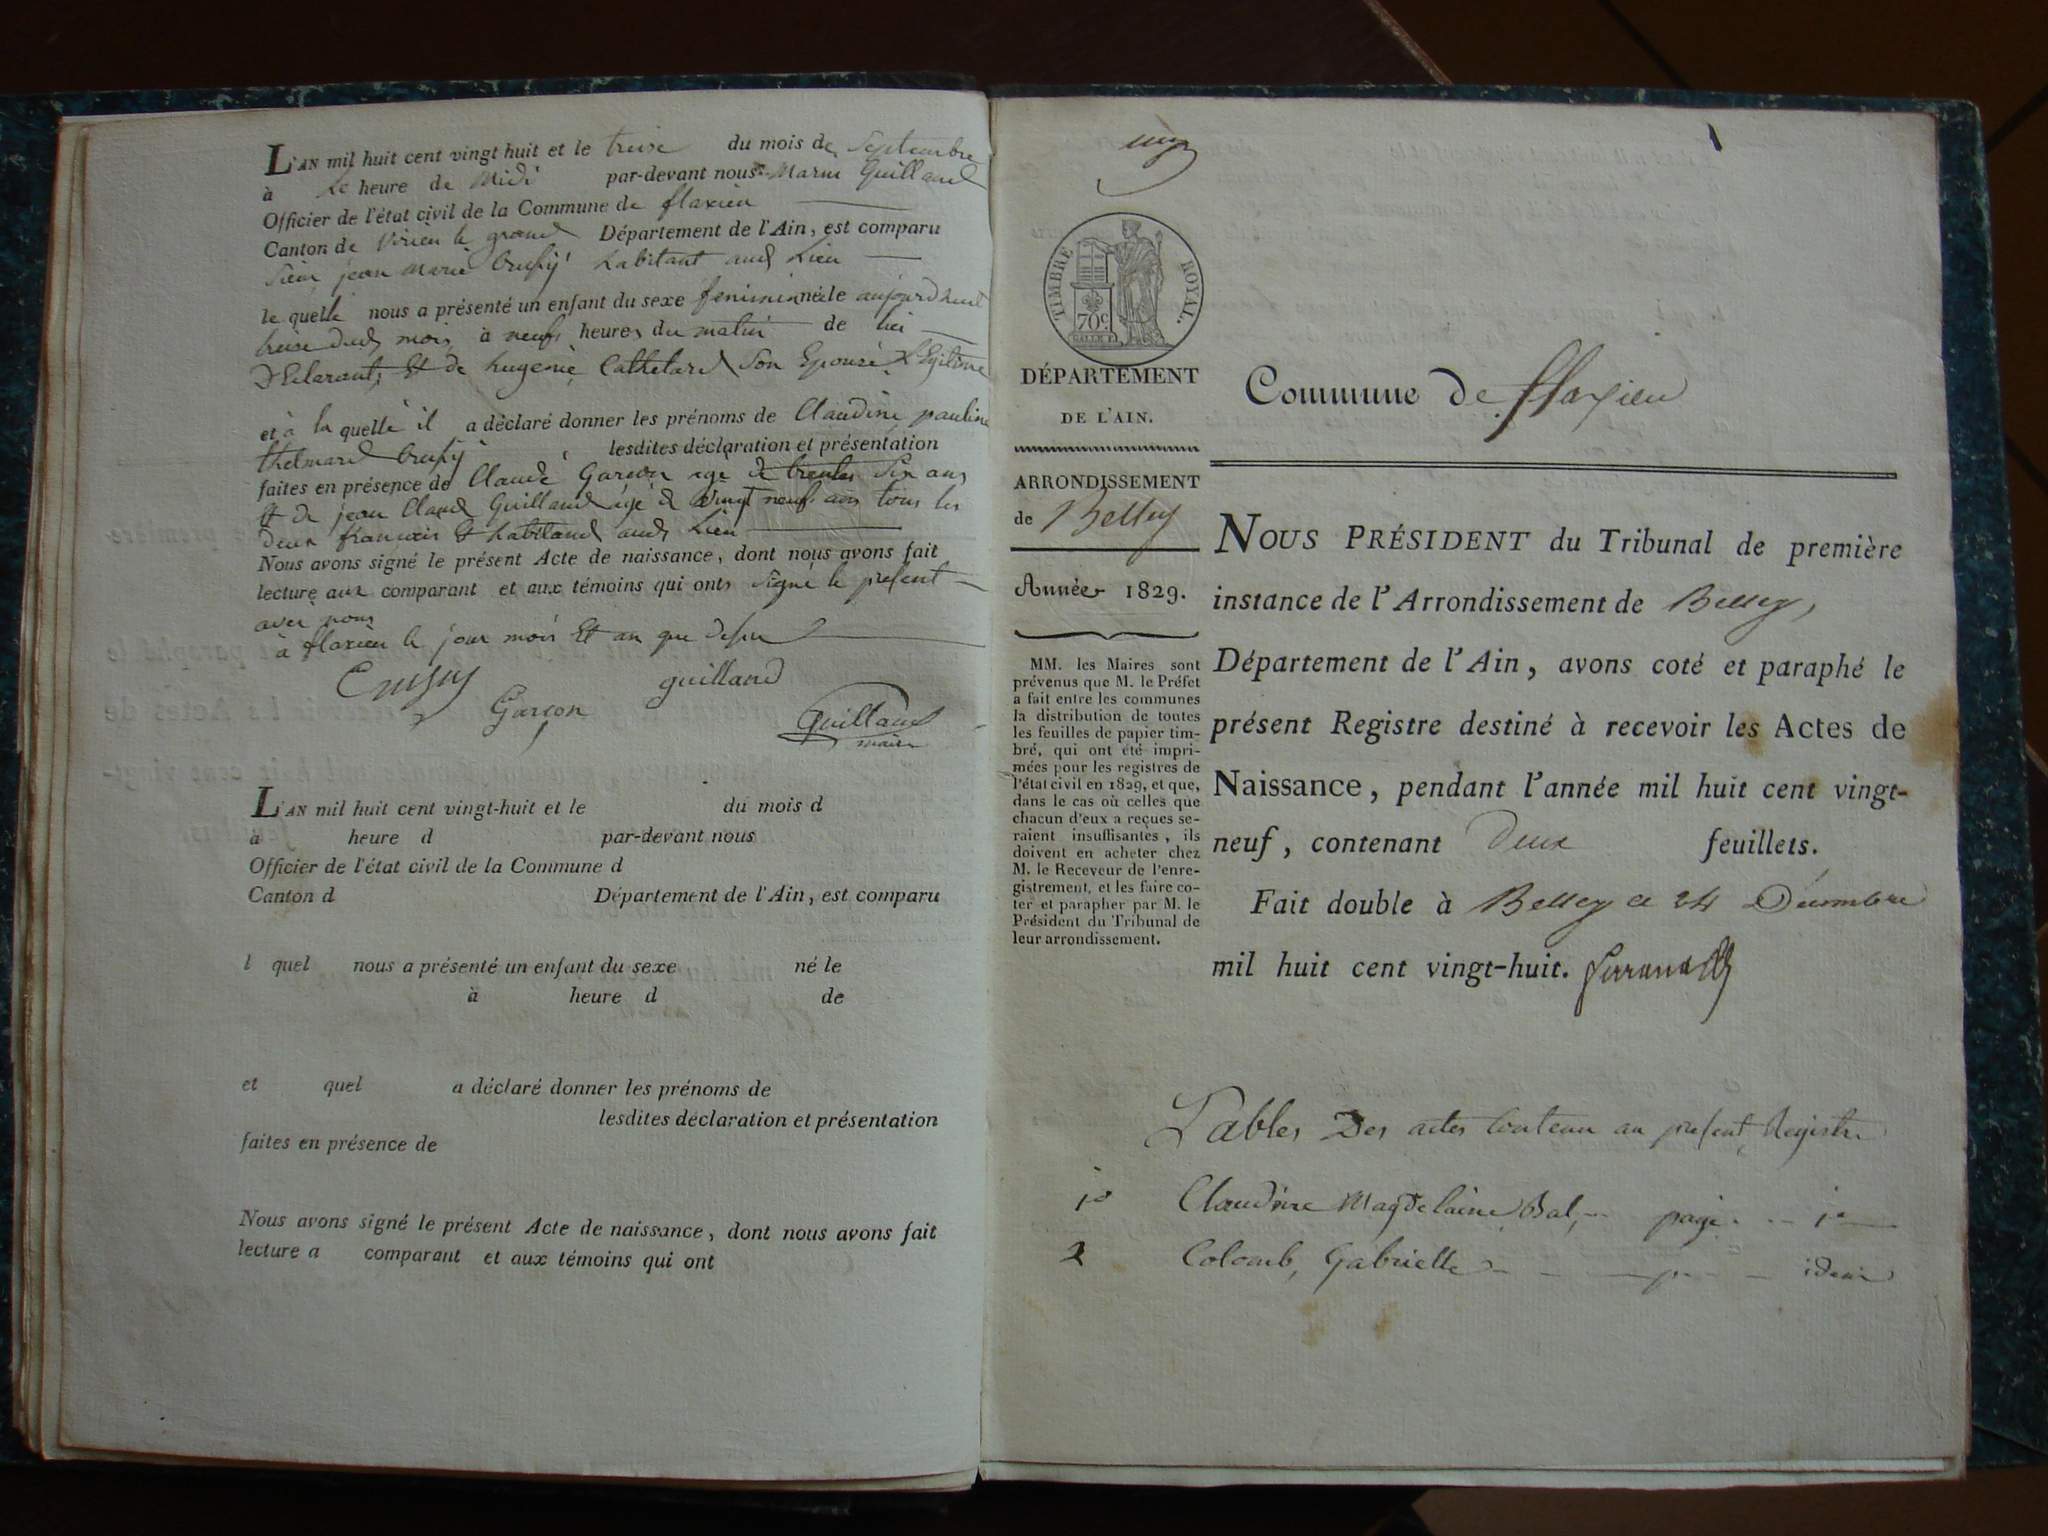 L'AN mil huit cent vingt huit et le treise du mois de Septembre
à heure de Midi par-devant nous Guilland
Officier de l'état civil de la Commune de flaxieu
Canton de virieu le grand Département de l'Ain, est comparu
Sieur jean Marie habitant aud Lieu
le quelle nous a présenté un enfant du sexe feminin née le aujourdhuit
treise dud mois à neuf heures du matin de lui
Déclarant, Et de Eugenie Cathelard Son Epouse Légitime
et à la quelle il a déclaré donner les prénoms de Claudine pauline
lesdites déclaration et présentation
faites en présence de Claude Garçon agé de trentes Six ans
Et de jean Claud Guilland agé de vingt neuf ans tous les
deux français Et habitand aud Lieu
Nous avons signé le présent Acte de naissance, dont nous avons fait
lecture aux comparant et aux témoins qui onts signé le present
avec nous
à flaxieu le jour mois Et an que desu
guilland
Garçon
Guilland
maire
L'AN mil huit cent vingt-huit et le du mois d
à heure d par-devant nous
Officier de l'état civil de la Commune d
Canton d Département de l'Ain, est comparu
l quel nous a présenté un enfant du sexe né le
à heure d de
et quel a déclaré donner les prénoms de
lesdites déclaration et présentation
faites en présence de
Nous avons signé le présent Acte de naissance, dont nous avons fait
lecture a comparant et aux témoins qui ont
1
TIMBRE ROYAL.
70c
DÉPARTEMENT
DE L'AIN.
ARRONDISSEMENT
de Belley
Année 1829.
MM. les Maires sont
prévenus que M. le Préfet
a fait entre les communes
la distribution de toutes
les feuilles de papier tim-
bré, qui ont été impri-
mées pour les registres de
l'état civil en 1829, et que,
dans le cas où celles que
chacun d'eux a reçues se-
raient insuffisantes, ils
doivent en acheter chez
M. le Receveur de l'enre-
gistrement, et les faire co-
ter et parapher par M. le
Président du Tribunal de
leur arrondissement.
Commune de flaxieu
NOUS PRÉSIDENT du Tribunal de première
instance de l'Arrondissement de Belley,
Département de l'Ain, avons coté et paraphé le
présent Registre destiné à recevoir les Actes de
Naissance, pendant l'année mil huit cent vingt-
neuf, contenant Deux feuillets.
Fait double à Belley ce 24 Décembre
mil huit cent vingt-huit.
Tables Des actes contenu au présent Registre
1o Claudine Magdelaine Bal, page 1o
2 Colomb, Gabrielle p. idem